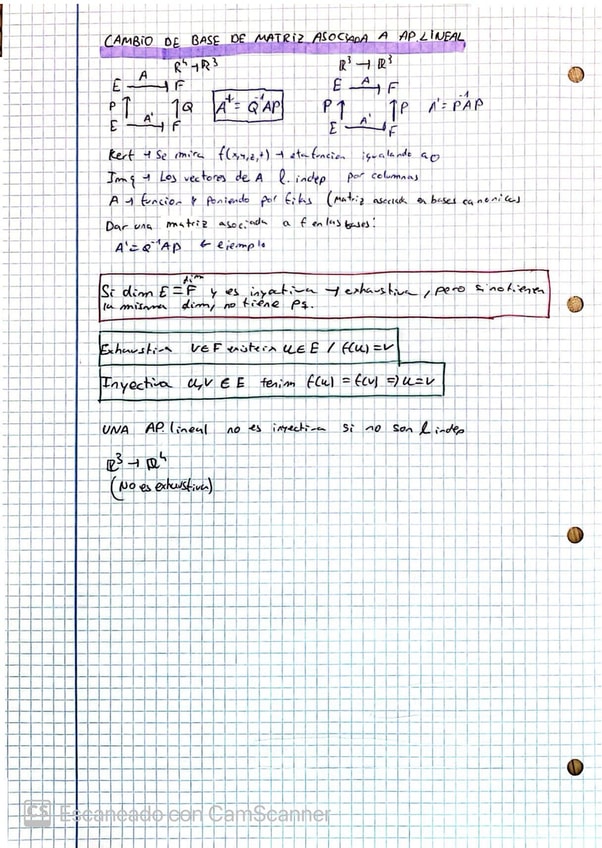 CAMBIO DE BASE DE MATRIZ ASOCIADA A AP. LINEAL
R⁴ → R³
R³ → R³
E A→ F
E A→ F
P↑ ↑Q
A⁺ = Q⁻¹AP
P↑ ↑P
A' = P⁻¹AP
E A'→ F
E A'→ F
Ker f → Se mira f(x,y,z,t) → esta funcion igualando a 0
Im g → Los vectores de A l. indep por columnas
A → funcion y poniendo por filas (Matriz asociada en bases canonicas
Dar una matriz asociada a f en las bases:
A' = Q⁻¹AP ← ejemplo
Si dim E = dim F y es inyectiva → exhaustiva, pero si no tienen
la misma dim, no tiene pq.
Exhaustiva v∈F existeix u∈E / f(u)=v
Inyectiva u,v ∈ E tenim f(u) = f(v) ⇒ u=v
UNA AP. lineal no es inyectiva si no son l indep
R³ → R⁴
(No es exhaustiva)
CS Escaneado con CamScanner